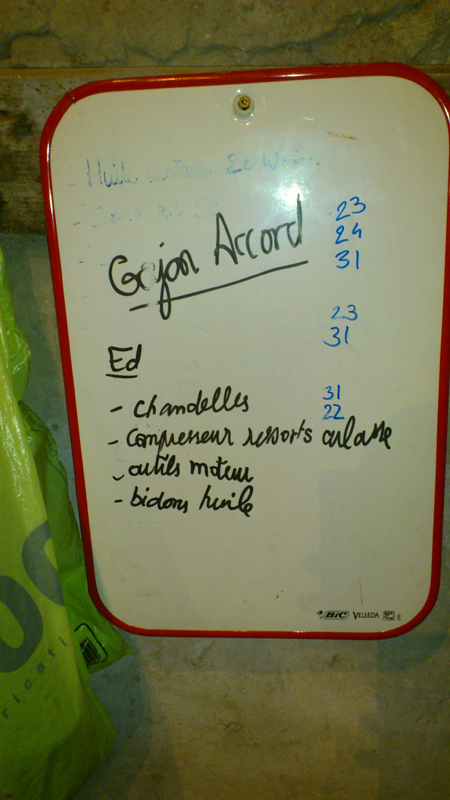 - Huile moteur 20W
23
24
Gojon Accord
31
23
31
Ed
- chandelles
31
22
- Compresseur ressorts culasse
- outils moteur
- bidons huile
BIC VELLEDA